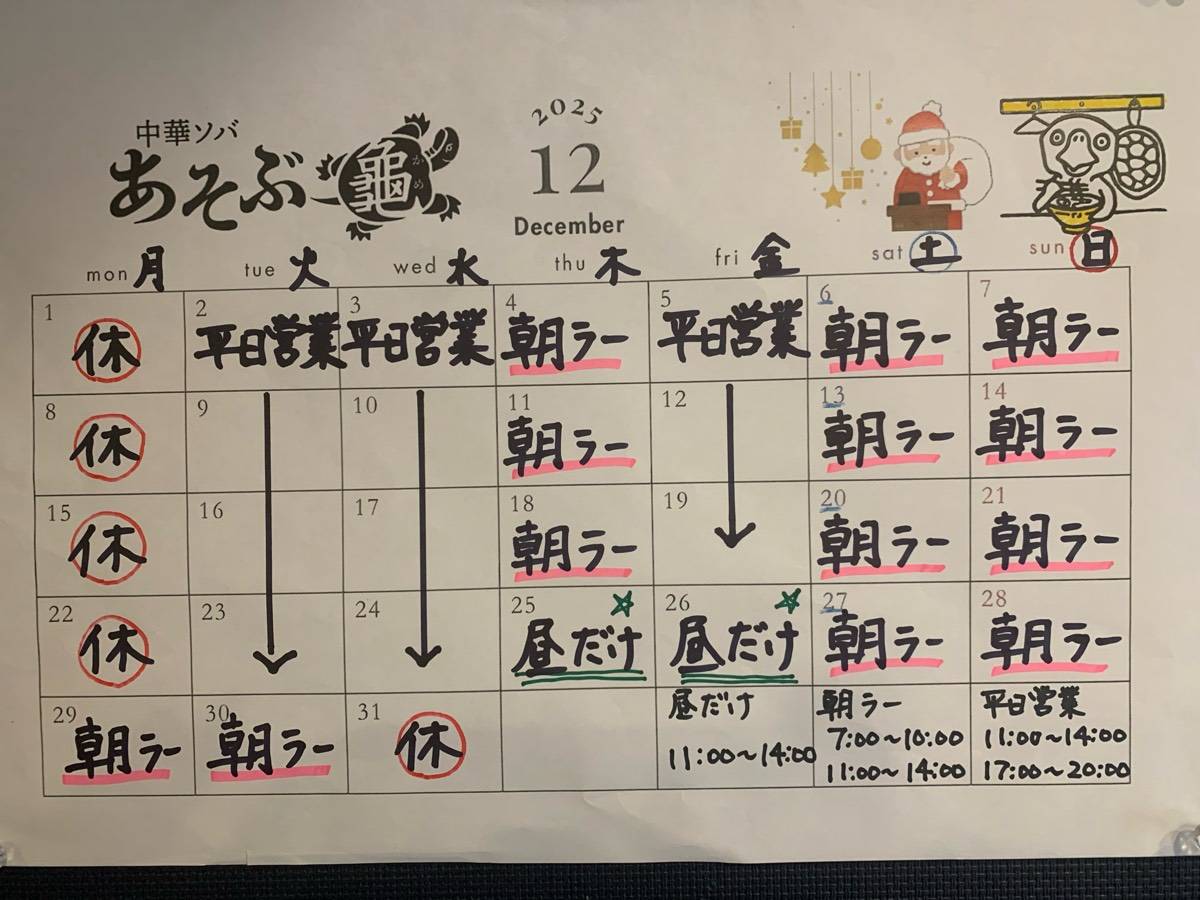 中華ソバ
あそぶ亀
かめ
2025
12
December
mon 月 tue 火 wed 水 thu 木 fri 金 sat 土 sun 日
1 2 3 4 5 6 7
休 平日営業 平日営業 朝ラー 平日営業 朝ラー 朝ラー
8 9 10 11 12 13 14
休 朝ラー 朝ラー 朝ラー
15 16 17 18 19 20 21
休 朝ラー 朝ラー 朝ラー
22 23 24 25 26 27 28
休 昼だけ 昼だけ 朝ラー 朝ラー
29 30 31
朝ラー 朝ラー 休
昼だけ
11:00~14:00
朝ラー
7:00~10:00
11:00~14:00
平日営業
11:00~14:00
17:00~20:00